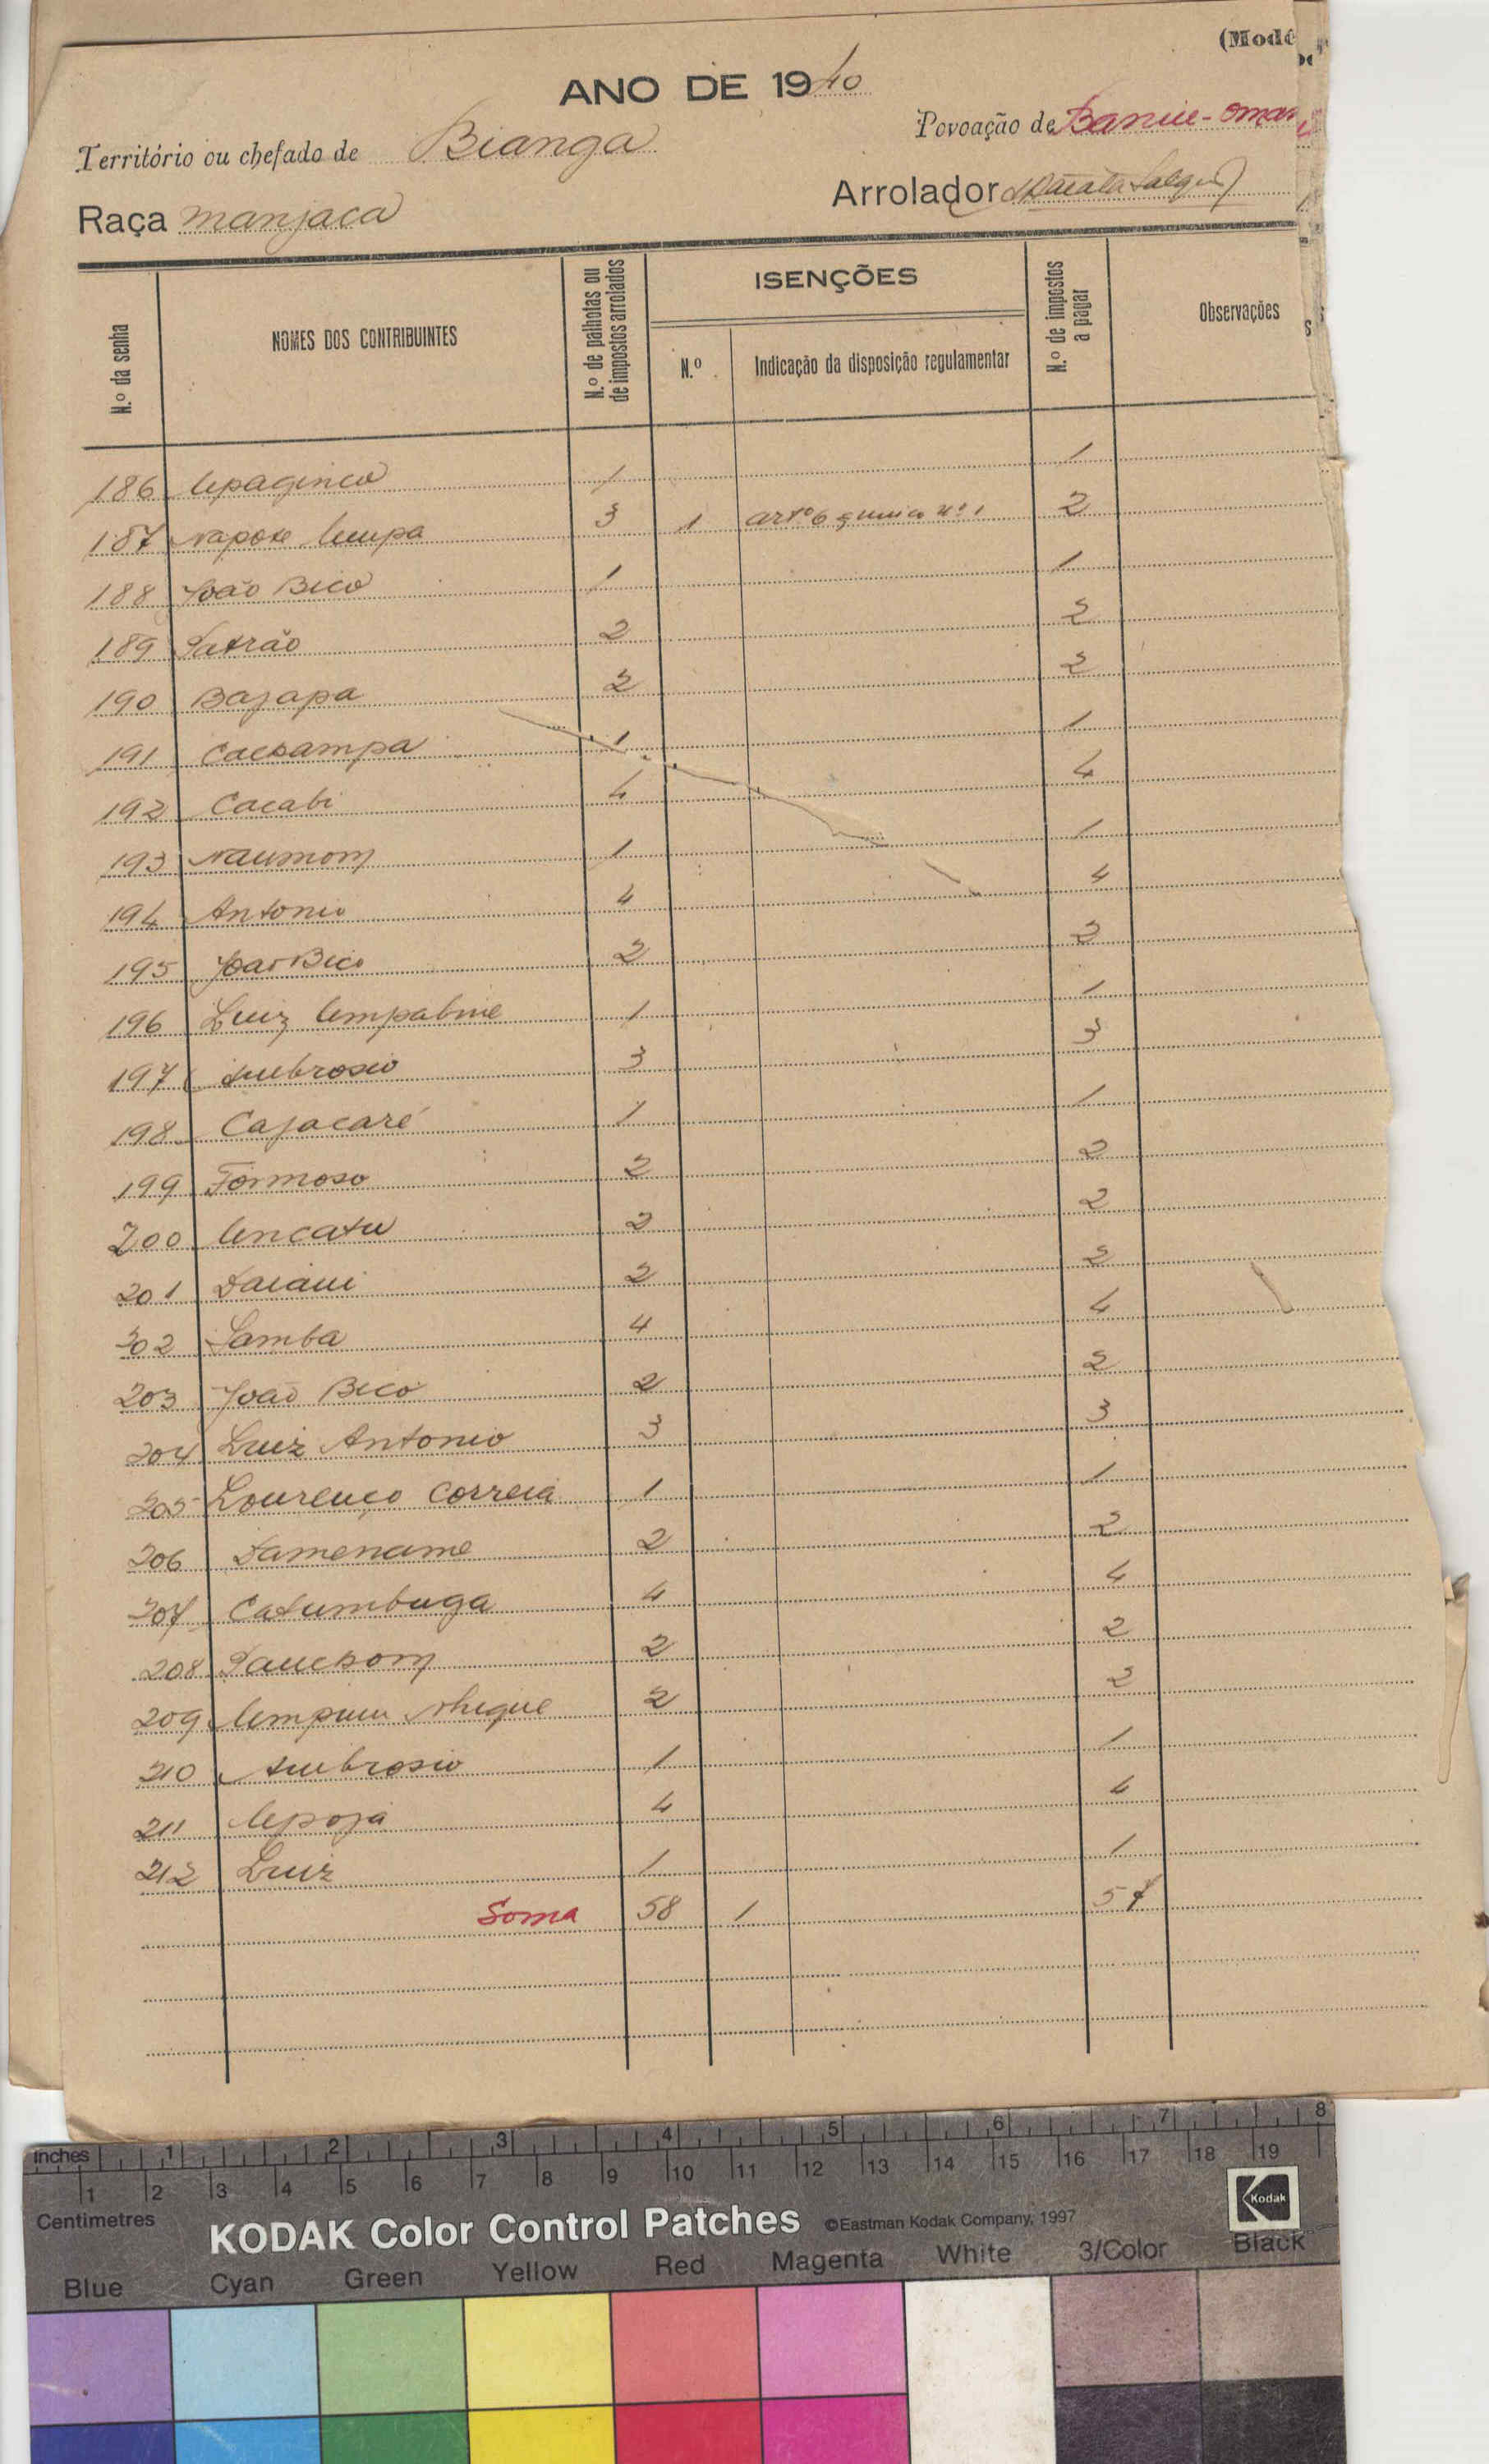 (Modé
ANO DE 1940
Território ou chefado de Bianga
Povoação de Baniu-oman
Raça manjaca
Arrolador
N.º da senha
NOMES DOS CONTRIBUINTES
N.º de palhotas ou de impostos arrolados
ISENÇÕES
N.º
Indicação da disposição regulamentar
N.º de impostos a pagar
Observações
186 Upaginca 1 1
187 Napote Umpa 3 1 artº 6 § unico nº 1 2
188 João Bico 1 1
189 Patrão 2 2
190 Bajapa 2 2
191 Cacsampa 1 1
192 Cacabi 4 4
193 Naumom 1 1
194 Antonio 4 4
195 João Bico 2 2
196 Luiz Umpabine 1 1
197 Ambrosio 3 3
198 Cajacaré 1 1
199 Formoso 2 2
200 Uncatu 2 2
201 Daiaui 2 2
202 Samba 4 4
203 João Bico 2 2
204 Luiz Antonio 3 3
205 Lourenço Correia 1 1
206 Damename 2 2
207 Catumbuga 4 4
208 Saucsom 2 2
209 Umpum 2 2
210 Ambrosio 1 1
211 Upoja 4 4
212 Luiz 1 1
Soma 58 1 57
inches 1 2 3 4 5 6 7 8
1 2 3 4 5 6 7 8 9 10 11 12 13 14 15 16 17 18 19
Centimetres
KODAK Color Control Patches ©Eastman Kodak Company, 1997
Kodak
Blue Cyan Green Yellow Red Magenta White 3/Color Black